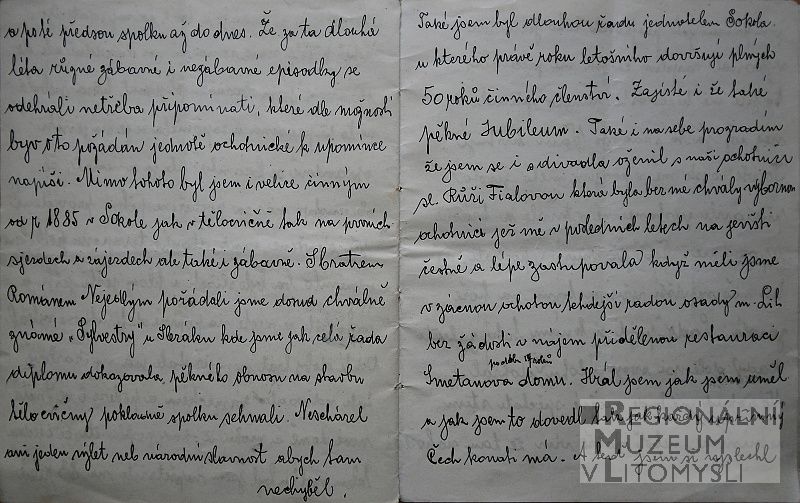 a poté předsou spolku až do dnes. Že za ta dlouhá
léta různé zábavné i nezábavné episodky se
odehráli netřeba připomínati, které dle možnosti
byv oto požádán jednotě ochotnické k upomínce
napíši. Mimo tohoto byl jsem i velice činným
od r 1885 v Sokole jak v tělocvičně tak na prvních
sjezdech a zájezdech ale také i zábavně. S bratrem
Románem Nejedlým pořádali jsme dosud chvalně
známé „Sylvestry" u Slezáku kde jsme jak celá řada
diplomu dokazovala, pěkného obnosu na stavbu
tělocvičny pokladně spolku sehnali. Nescházel
ani jeden výlet neb národní slavnost abych tam
nechyběl.
Také jsem byl dlouhou řadu jednatelem Sokola
u kterého právě roku letošního dovršuji plných
50 roků činného členství. Zajisté i že také
pěkné Jubileum. Také i na sebe prozradím
že jsem se i s divadla oženil s naší ochotnicí
sl. Růží Fialovou která byla bez mé chvály výbornou
ochotnicí jež mě v posledních letech na jevišti
čestně a lépe zastupovala když měli jsme
vzácnou ochotou tehdejší radou osady m. Lit
bez žádosti v nájem přidělenou restauraci
Smetanova domu. Hrál jsem jak jsem uměl
a jak jsem to dovedl tak jak každý
Čech konati má. A když jsem si
REGIONÁLNÍ
MUZEUM
V LITOMYŠLI